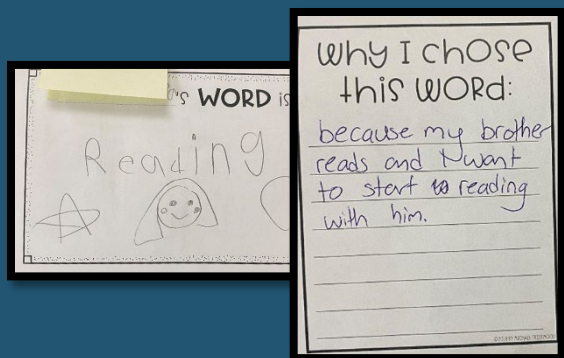 's WORD is
Reading
Why I chose
this WORD:
because my brother
reads and I want
to start reading
with him.